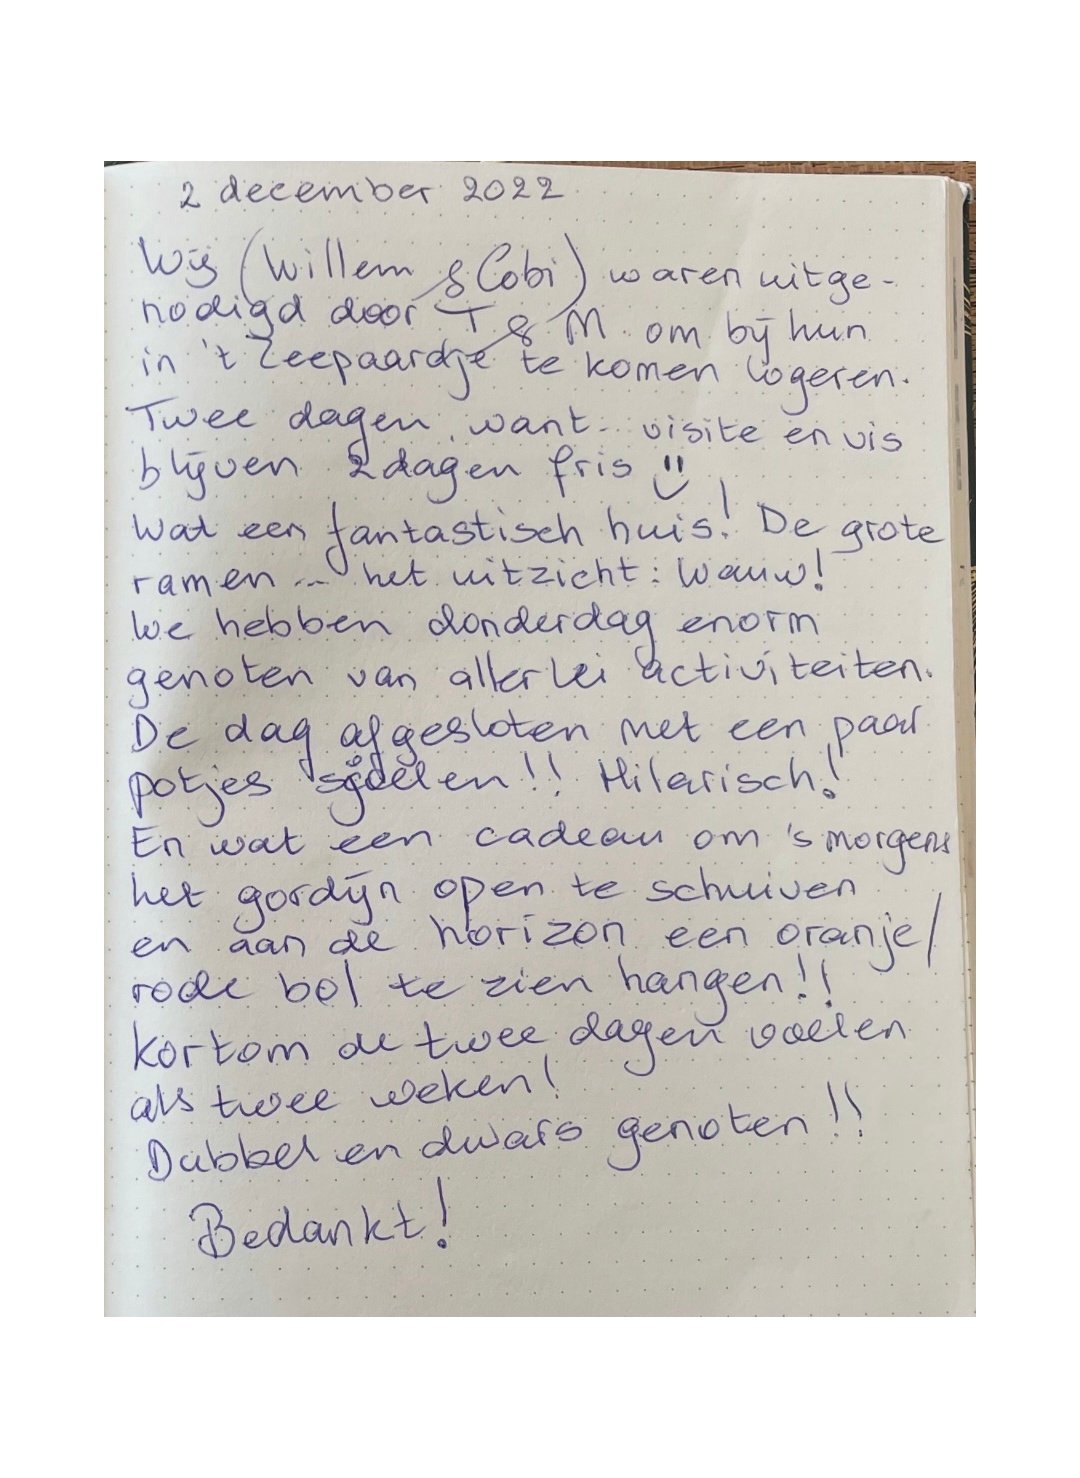 2 december 2022
Wij (Willem & Cobi) waren uitge-
nodigd door T & M om bij hun
in 't Zeepaardje te komen logeren.
Twee dagen, want.. visite en vis
blijven 2 dagen fris
Wat een fantastisch huis! De grote
ramen... het uitzicht: Wauw!
We hebben donderdag enorm
genoten van allerlei activiteiten.
De dag afgesloten met een paar
potjes sjoelen!! Hilarisch!
En wat een cadeau om 's morgens
het gordijn open te schuiven
en aan de horizon een oranje/
rode bol te zien hangen!!
Kortom de twee dagen voelen
als twee weken!
Dubbel en dwars genoten!!
Bedankt!